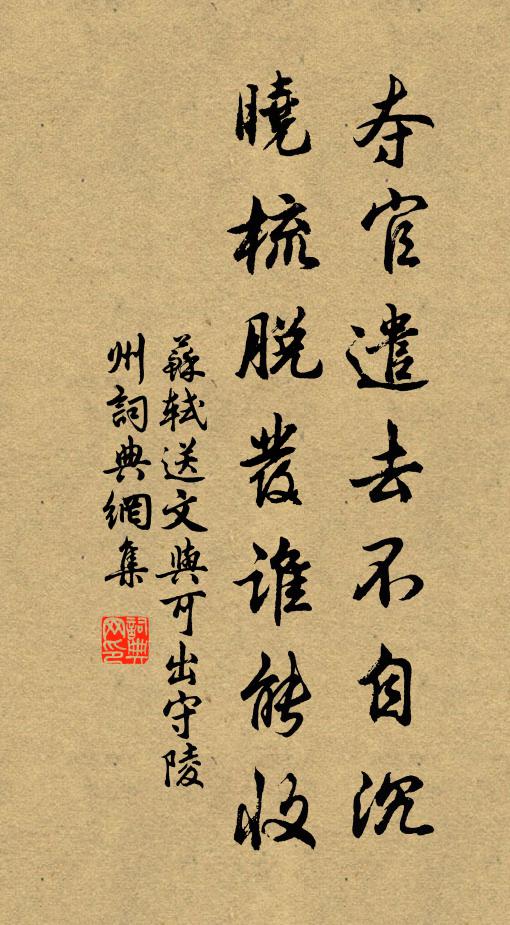 夺官遣去不自沉
曉梳脫發誰能收
蘇軾送文與可出守陵
州詞典網集
詞典網印